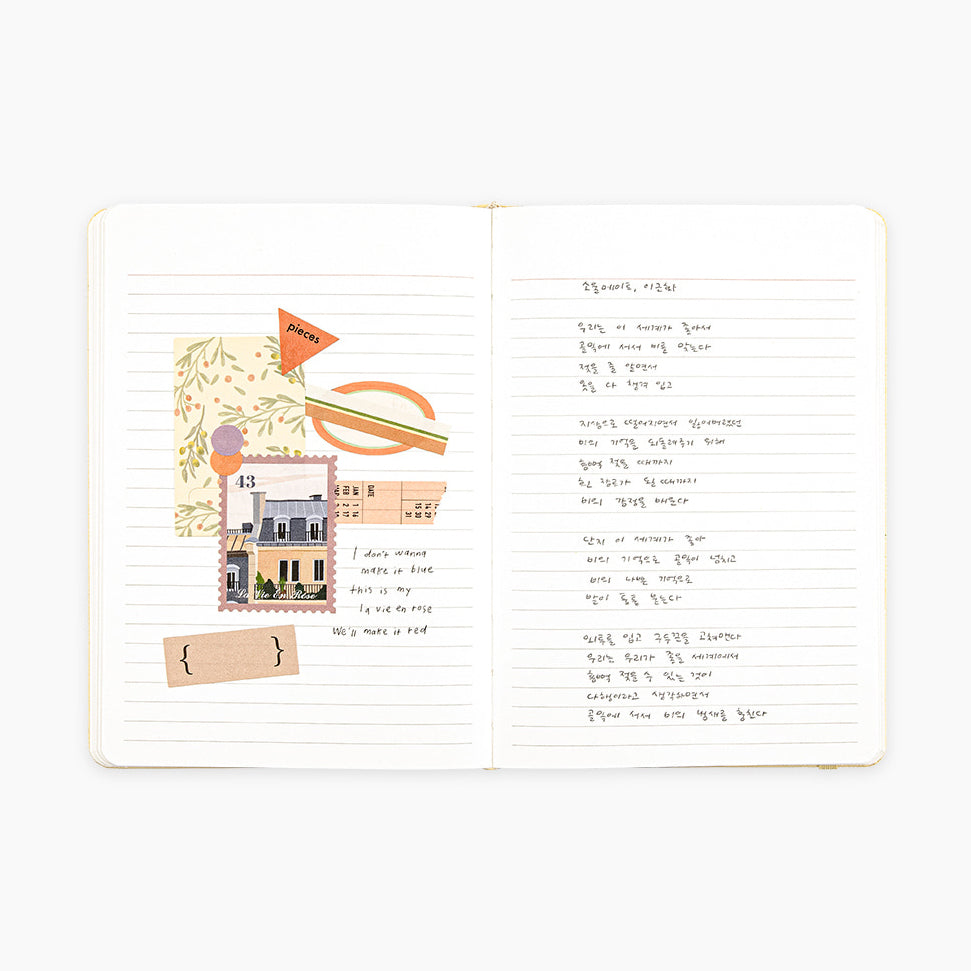 pieces
43
DATE
JAN 1 16
FEB 2 17
14 29
15 30
31
La Vie En Rose
I don't wanna
make it blue
this is my
la vie en rose
We'll make it red
{ }
소울메이트, 이근화
우리는 이 세계가 좋아서
골목에 서서 비를 맞는다
젖을 줄 알면서
옷을 다 챙겨 입고
지상으로 떨어지면서 잃어버렸던
비의 기억을 되돌려주기 위해
흠뻑 젖을 때까지
흰 장르가 될 때까지
비의 감정을 배운다
단지 이 세계가 좋아
비의 기억으로 골목이 넘치고
비의 나쁜 기억으로
발이 퉁퉁 붇는다
외투를 입고 구두끈을 고쳐맨다
우리는 우리가 좋을 세계에서
흠뻑 젖을 수 있는 것이
다행이라고 생각하면서
골목에 서서 비의 냄새를 훔친다